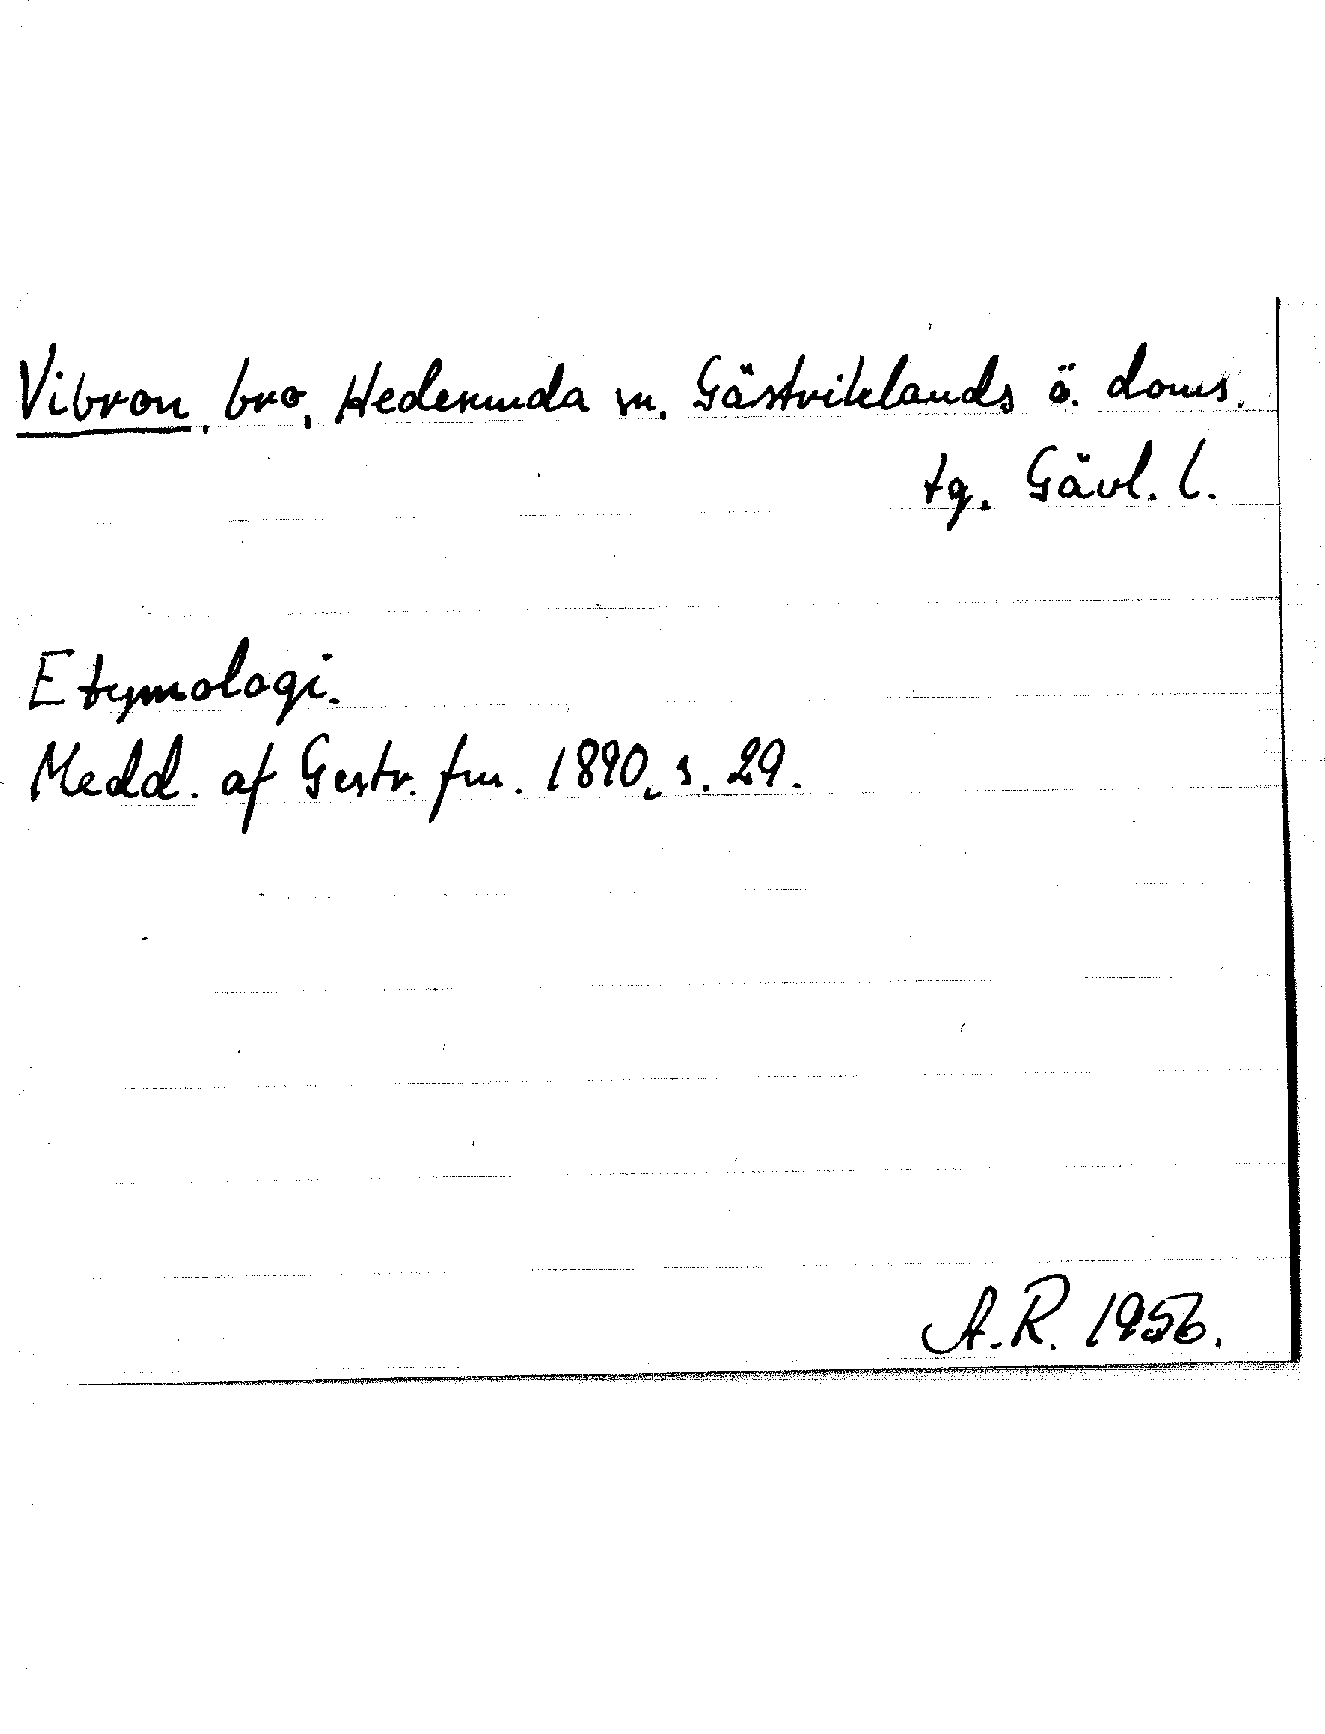 Vibron, bro, Hedesunda sn. Gästriklands ö. doms.
tg. Gävl. l.
Etymologi.
Medd. af Gestr. fm. 1890, s. 29.
A.R. 1956.